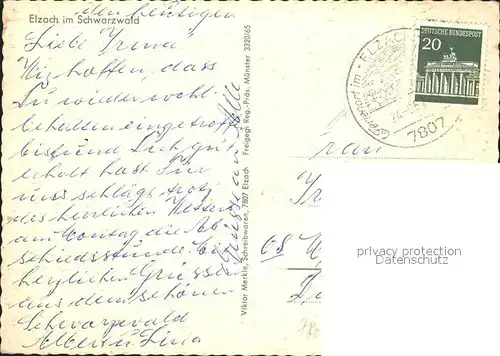 Elzach im Schwarzwald
den heutigen
Liebe Irma!
Wir hoffen, dass
Du wieder wohl-
behalten eingetroffen
bist und Dich gut
erholt hast. Für
uns schlägt trotz
des herrlichen Wetters
am Montag die Ab-
schiedsstunde. Die
herzlichen Grüsse
aus dem schönen
Schwarzwald
Albert u. Lina
Grüsse an Alle
Viktor Merkle, Schreibwaren, 7807 Elzach Freigeg. Reg.-Präs. Münster 3320/65
Ferienort im
ELZACH
7807
DEUTSCHE BUNDESPOST
20
Frau
privacy protection
Datenschutz